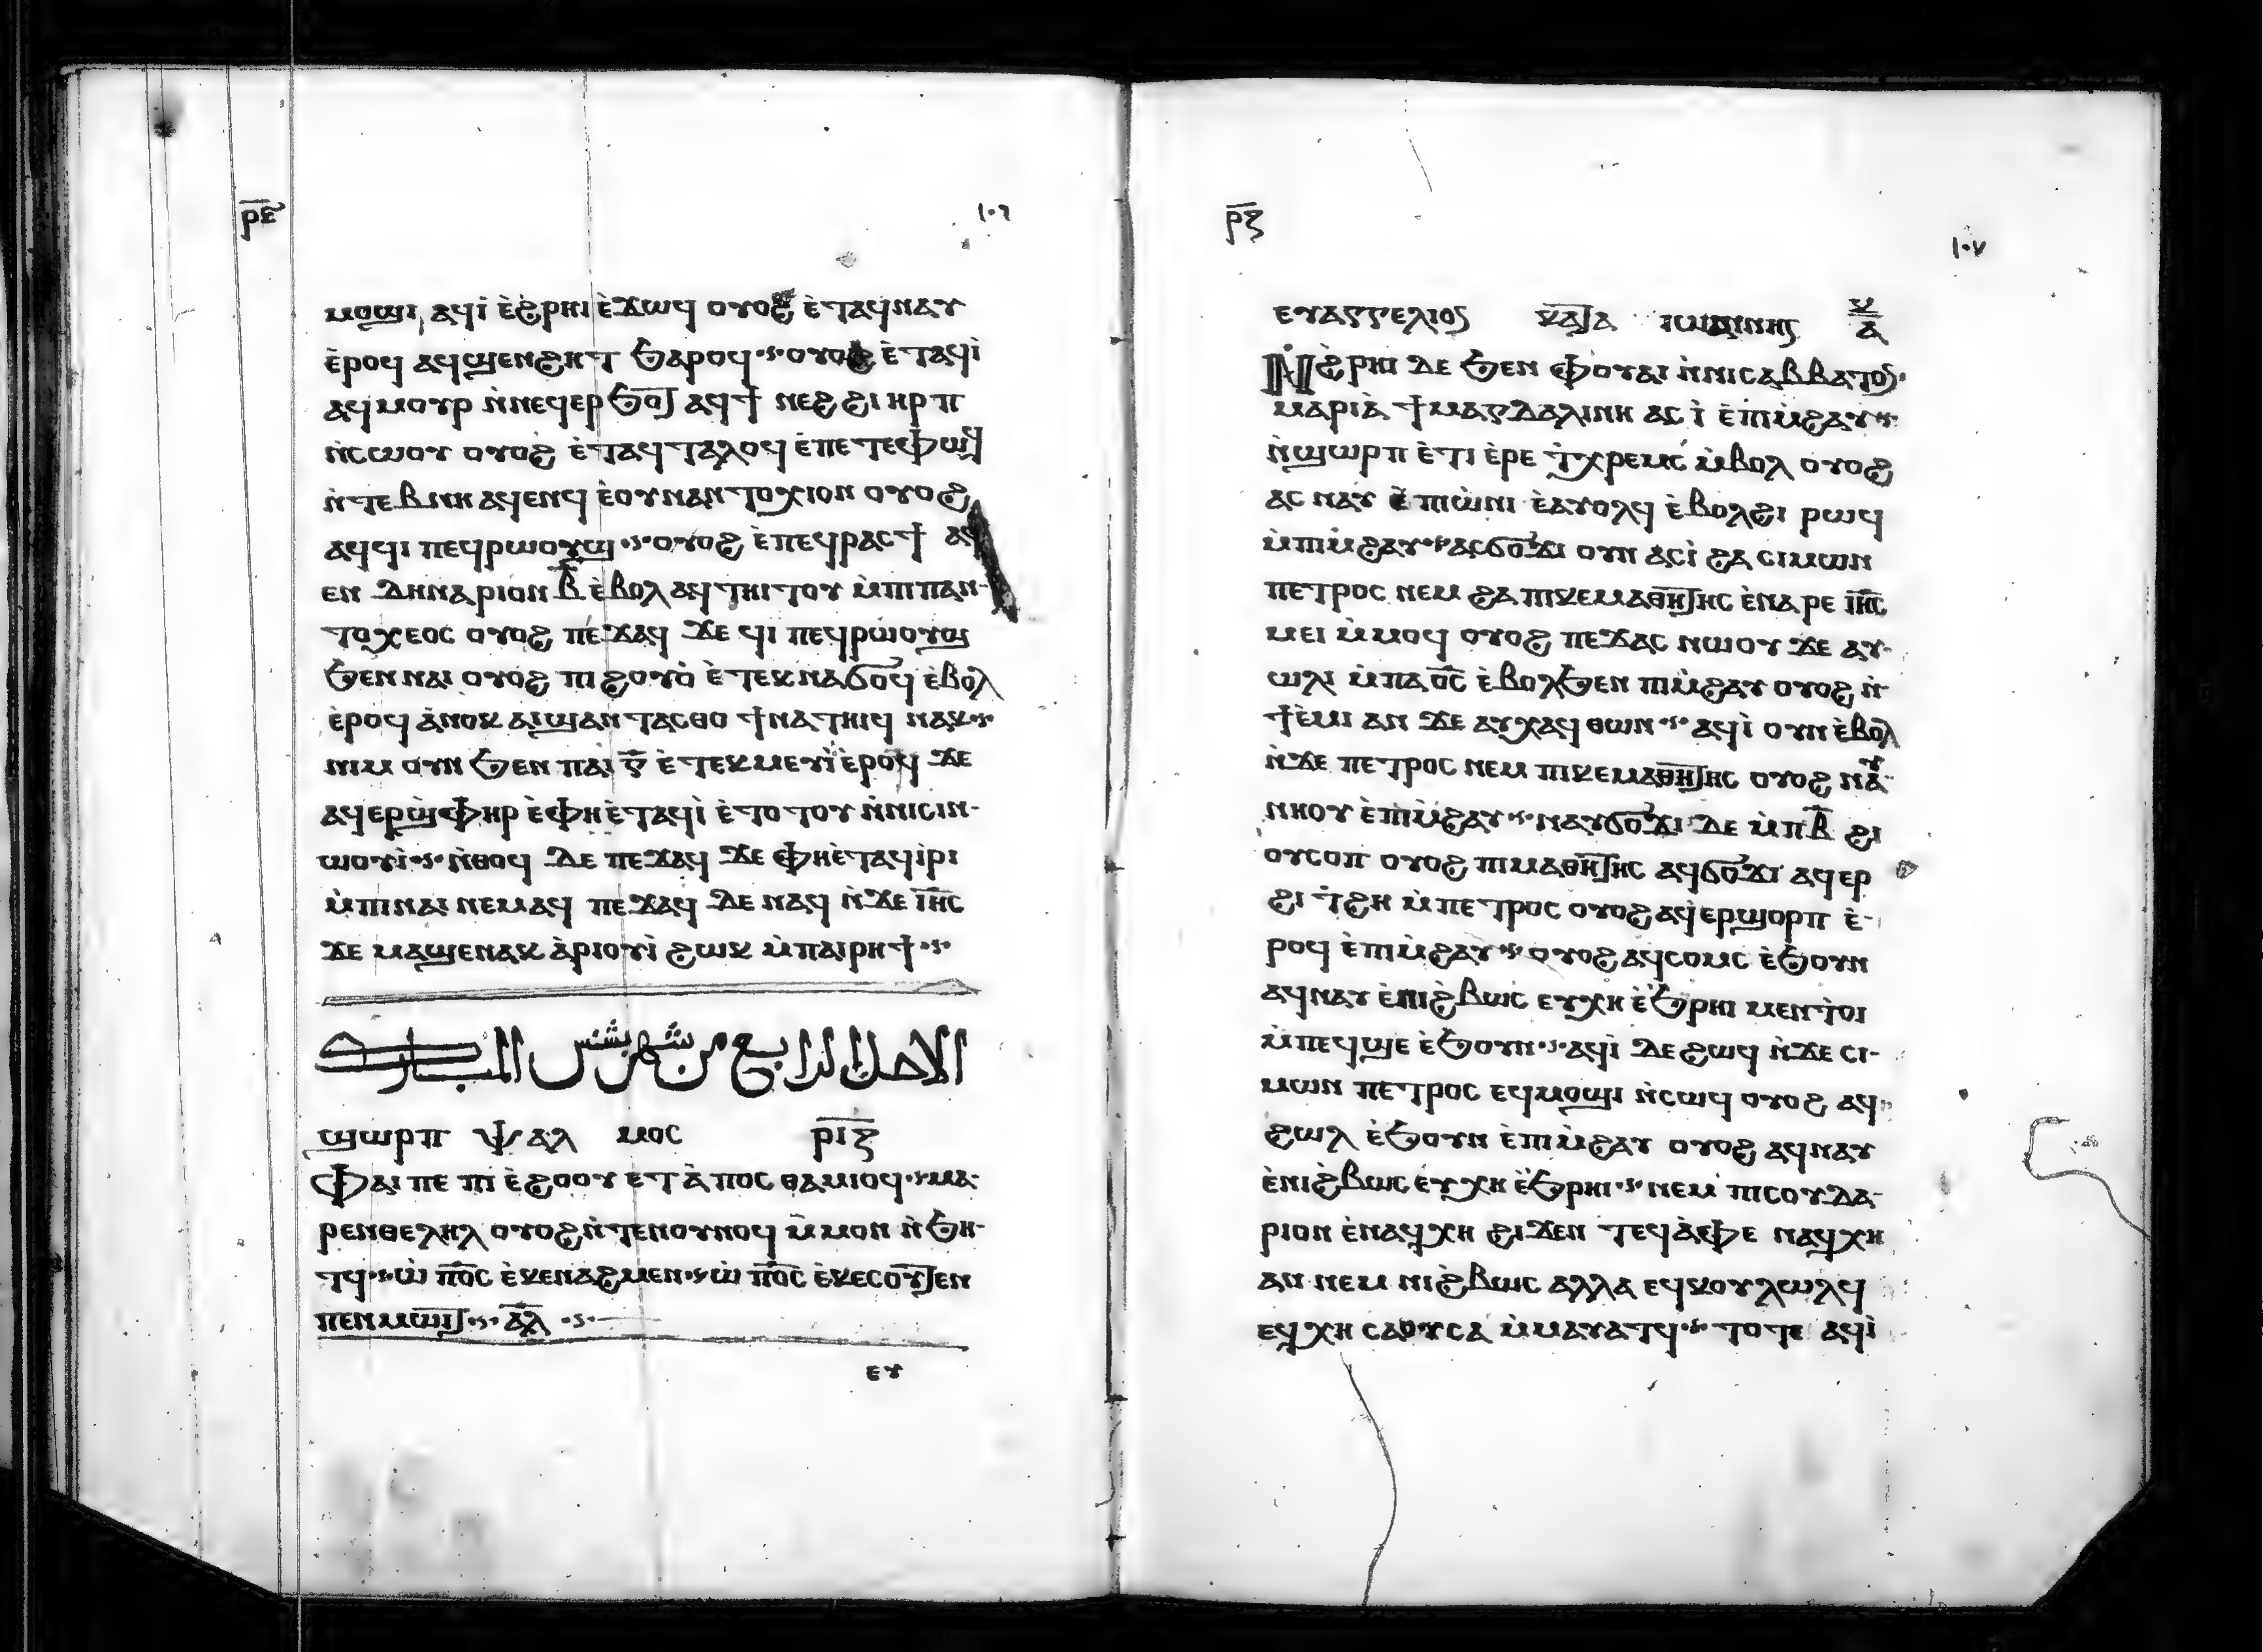 ⲣ̅ⲋ̅ ١٠٦
ⲙⲟϣⲓ ⲁϥⲓ̀ ⲉ̀ϩ̀ⲣⲏⲓ ⲉ̀ϫⲱϥ ⲟⲩⲟϩ ⲉ̀ⲧⲁϥⲛⲁⲩ
ⲉ̀ⲣⲟϥ ⲁϥϣⲉⲛϩⲏⲧ ϧⲁⲣⲟϥ ⲟⲩⲟϩ ⲉ̀ⲧⲁϥⲓ̀
ⲁϥⲙⲟⲩⲣ ⲛ̀ⲛⲉϥⲉⲣϧⲟⲧ ⲁϥϯ ⲛⲉϩ ϩⲓ ⲏⲣⲡ
ⲛ̀ⲥⲱⲟⲩ ⲟⲩⲟϩ ⲉ̀ⲧⲁϥⲧⲁⲗⲟϥ ⲉ̀ⲡⲉⲧⲉⲫⲱϥ
ⲛ̀ⲧⲉⲃⲛⲏ ⲁϥⲉⲛϥ ⲉ̀ⲟⲩⲡⲁⲛⲧⲟⲭⲓⲟⲛ ⲟⲩⲟϩ
ⲁϥϥⲓ ⲡⲉϥⲣⲱⲟⲩϣ ⲟⲩⲟϩ ⲉ̀ⲡⲉϥⲣⲁⲥϯ ⲁϥ
ⲉⲛ ⲇⲏⲛⲁⲣⲓⲟⲛ ⲃ̅ ⲉ̀ⲃⲟⲗ ⲁϥⲧⲏⲓⲧⲟⲩ ⲙ̀ⲡⲓⲡⲁⲛ-
ⲧⲟⲭⲉⲟⲥ ⲟⲩⲟϩ ⲡⲉϫⲁϥ ϫⲉ ϥⲓ ⲡⲉϥⲣⲱⲟⲩϣ
ϧⲉⲛ ⲛⲁⲓ ⲟⲩⲟϩ ⲡⲓ ϩⲟⲩⲟ̀ ⲉ̀ⲧⲉⲕⲛⲁϭⲟϥ ⲉ̀ⲃⲟⲗ
ⲉ̀ⲣⲟϥ ⲁ̀ⲛⲟⲕ ⲁⲓϣⲁⲛⲧⲁⲥⲑⲟ ϯⲛⲁⲧⲏⲓϥ ⲛⲁⲕ
ⲛⲓⲙ ⲟⲩⲛ ϧⲉⲛ ⲡⲁⲓ ⲅ̅ ⲉ̀ⲧⲉⲕⲙⲉⲩⲓ̀ ⲉ̀ⲣⲟϥ ϫⲉ
ⲁϥⲉⲣϣ̀ⲫⲏⲣ ⲉ̀ⲫⲏⲉ̀ⲧⲁϥⲓ̀ ⲉ̀ⲧⲟⲧⲟⲩ ⲛ̀ⲛⲓⲥⲓⲛ-
ⲱⲟⲩⲓ̀ ⲛ̀ⲑⲟϥ ⲇⲉ ⲡⲉϫⲁϥ ϫⲉ ⲫⲏⲉ̀ⲧⲁϥⲓ̀ⲣⲓ
ⲙ̀ⲡⲓⲛⲁⲓ ⲛⲉⲙⲁϥ ⲡⲉϫⲁϥ ⲇⲉ ⲛⲁϥ ⲛ̀ϫⲉ ⲓ̅ⲏ̅ⲥ̅
ϫⲉ ⲙⲁϣⲉⲛⲁⲕ ⲁ̀ⲣⲓⲟⲩⲓ̀ ϩⲱⲕ ⲙ̀ⲡⲁⲓⲣⲏϯ
الاحد الرابع من شهر بشنس المبارك
ϣⲱⲣⲡ ⲯⲁⲗ ⲙⲟⲥ ⲣ̅ⲓ̅ⲍ̅
ⲫⲁⲓ ⲡⲉ ⲡⲓ ⲉ̀ϩⲟⲟⲩ ⲉⲧⲁ̀ⲡⲟⲥ ⲑⲁⲙⲓⲟϥ ⲙⲁ-
ⲣⲉⲛⲑⲉⲗⲏⲗ ⲟⲩⲟϩ ⲛ̀ⲧⲉⲛⲟⲩⲛⲟϥ ⲙ̀ⲙⲟⲛ ⲛ̀ϧⲏ-
ⲧϥ ⲱ̀ ⲡ̅ⲟ̅ⲥ̅ ⲉ̀ⲕⲉⲛⲁϩⲙⲉⲛ ⲱ̀ ⲡ̅ⲟ̅ⲥ̅ ⲉ̀ⲕⲉⲥⲟⲩⲧⲉⲛ
ⲡⲉⲛⲙⲱⲓⲧ ⲁ̅ⲗ̅
ⲉⲩ
ⲣ̅ⲍ̅ ١٠٧
ⲉⲩⲁⲅⲅⲉⲗⲓⲟⲥ ⲕⲁⲧⲁ ⲓⲱⲁⲛⲛⲏⲥ ⲕ̅ⲁ̅
ⲛ̀ϩ̀ⲣⲏⲓ ⲇⲉ ϧⲉⲛ ⲫⲟⲩⲁⲓ ⲛ̀ⲛⲓⲥⲁⲃⲃⲁⲧⲟⲥ
ⲙⲁⲣⲓⲁ̀ ϯⲙⲁⲅⲇⲁⲗⲓⲛⲏ ⲁⲥ ⲓ̀ ⲉ̀ⲡⲓⲙ̀ϩⲁⲩ
ⲛ̀ϣⲱⲣⲡ ⲉ̀ⲧⲓ ⲉ̀ⲣⲉ ⲧ̀ⲭⲣⲉⲙⲥ ⲙ̀ⲃⲟⲗ ⲟⲩⲟϩ
ⲁⲥ ⲛⲁⲩ ⲉ̀ⲡⲓⲱ̀ⲛⲓ ⲉ̀ⲁⲩⲟⲗϥ ⲉ̀ⲃⲟⲗϩⲓ ⲣⲱϥ
ⲙ̀ⲡⲓⲙ̀ϩⲁⲩ ⲁⲥϭⲟϫⲓ ⲟⲩⲛ ⲁⲥⲓ̀ ϩⲁ ⲥⲓⲙⲱⲛ
ⲡⲉⲧⲣⲟⲥ ⲛⲉⲙ ϩⲁ ⲡⲓⲕⲉⲙⲁⲑⲏⲧⲏⲥ ⲉ̀ⲛⲁⲣⲉ ⲓ̅ⲏ̅ⲥ̅
ⲙⲉⲓ ⲙ̀ⲙⲟϥ ⲟⲩⲟϩ ⲡⲉϫⲁⲥ ⲛⲱⲟⲩ ϫⲉ ⲁⲩ-
ⲱⲗⲓ ⲙ̀ⲡⲁⲟ̅ⲥ̅ ⲉ̀ⲃⲟⲗϧⲉⲛ ⲡⲓⲙ̀ϩⲁⲩ ⲟⲩⲟϩ ⲛ̀
ϯⲉ̀ⲙⲓ ⲁⲛ ϫⲉ ⲁⲩⲭⲁϥ ⲑⲱⲛ ⲁϥⲓ̀ ⲟⲩⲛ ⲉ̀ⲃⲟⲗ
ⲛ̀ϫⲉ ⲡⲉⲧⲣⲟⲥ ⲛⲉⲙ ⲡⲓⲕⲉⲙⲁⲑⲏⲧⲏⲥ ⲟⲩⲟϩ ⲛⲁⲩ
ⲛⲏⲟⲩ ⲉ̀ⲡⲓⲙ̀ϩⲁⲩ ⲛⲁⲩϭⲟϫⲓ ⲇⲉ ⲙ̀ⲡⲃ̅ ϩⲓ
ⲟⲩⲥⲟⲡ ⲟⲩⲟϩ ⲡⲓⲙⲁⲑⲏⲧⲏⲥ ⲁϥϭⲟϫⲓ ⲁϥⲉⲣ
ϩⲓ ⲧ̀ϩⲏ ⲙ̀ⲡⲉⲧⲣⲟⲥ ⲟⲩⲟϩ ⲁϥⲉⲣϣⲟⲣⲡ ⲉ̀-
ⲣⲟϥ ⲉ̀ⲡⲓⲙ̀ϩⲁⲩ ⲟⲩⲟϩ ⲁϥⲥⲟⲙⲥ ⲉ̀ϧⲟⲩⲛ
ⲁϥⲛⲁⲩ ⲉ̀ⲛⲓϩ̀ⲃⲱⲥ ⲉⲩⲭⲏ ⲉ̀ϧ̀ⲣⲏⲓ ⲙⲉⲛⲧⲟⲓ
ⲙ̀ⲡⲉϥϣⲉ ⲉ̀ϧⲟⲩⲛ ⲁϥⲓ̀ ⲇⲉ ϩⲱϥ ⲛ̀ϫⲉ ⲥⲓ-
ⲙⲱⲛ ⲡⲉⲧⲣⲟⲥ ⲉϥⲙⲟϣⲓ ⲛ̀ⲥⲱϥ ⲟⲩⲟϩ ⲁϥ
ϩⲱⲗ ⲉ̀ϧⲟⲩⲛ ⲉ̀ⲡⲓⲙ̀ϩⲁⲩ ⲟⲩⲟϩ ⲁϥⲛⲁⲩ
ⲉ̀ⲛⲓϩ̀ⲃⲱⲥ ⲉⲩⲭⲏ ⲉ̀ϧ̀ⲣⲏⲓ ⲛⲉⲙ ⲡⲓⲥⲟⲩⲇⲁ-
ⲣⲓⲟⲛ ⲉ̀ⲛⲁϥⲭⲏ ϩⲓϫⲉⲛ ⲧⲉϥⲁ̀ⲫⲉ ⲛⲁϥⲭⲏ
ⲁⲛ ⲛⲉⲙ ⲛⲓϩ̀ⲃⲱⲥ ⲁⲗⲗⲁ ⲉϥⲕⲟⲩⲗⲱⲗϥ
ⲉϥⲭⲏ ⲥⲁⲟⲩⲥⲁ ⲙ̀ⲙⲁⲩⲁⲧϥ ⲧⲟⲧⲉ ⲁϥⲓ̀